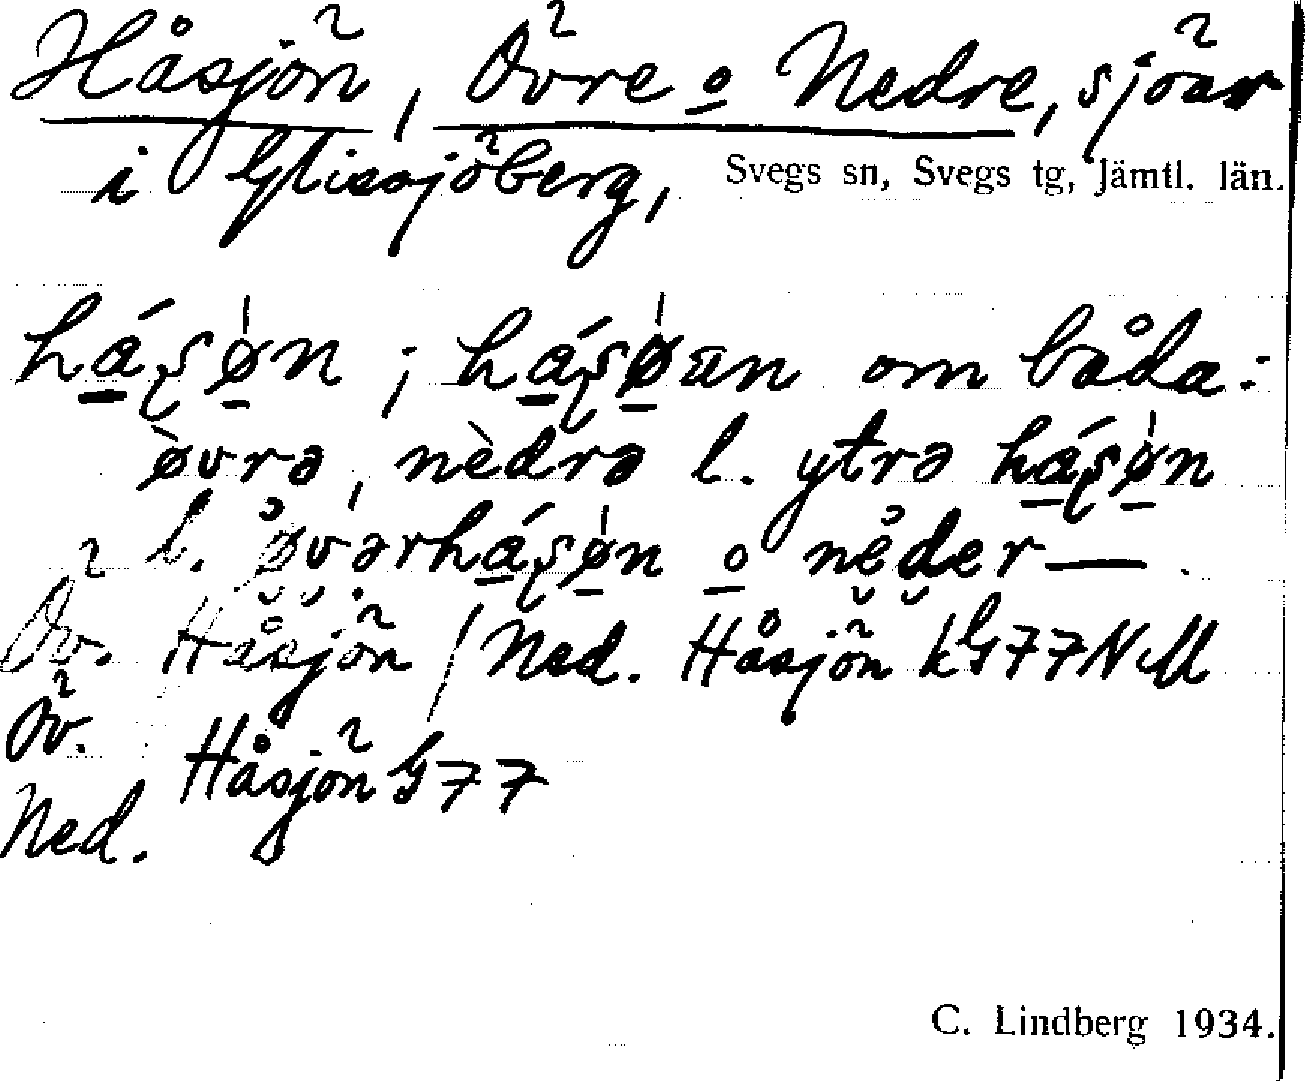 Håsjön, Övre o Nedre, sjöar
i Glissjöberg, Svegs sn, Svegs tg, Jämtl. län.
hás̨øn ; hás̨øan om båda:
òvrə, nèdrə l. ytrə hás̨øn
l. øvərhás̨øn o neder— .
Öv. Håsjön / Ned. Håsjön kG77NM
Öv.
Håsjön G77
Ned.
C. Lindberg 1934.